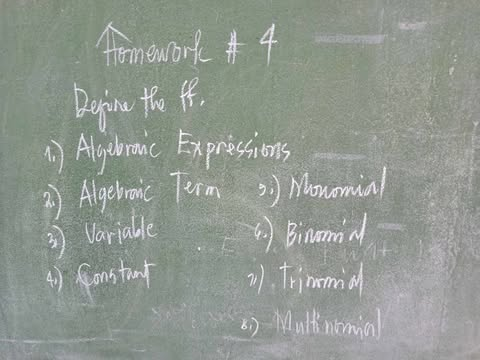 Homework # 4
Define the ff.
1.) Algebraic Expressions
2.) Algebraic Term
3.) Variable
4.) Constant
5.) Monomial
6.) Binomial
7.) Trinomial
8.) Multinomial